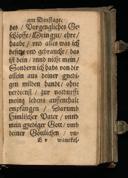 am Dinstage.
das / Vorgängliches Ge-
schöpffe / Mein gut / ehre /
haabe / und alles was ich
besitze und gebrauche / das
ist dein / unnd nicht mein /
Sondern ich habs von dir
allein aus deiner gnedi-
gen milden hande / ohne
verdienst / zur notturfft
meins lebens auffenthalt
empfangen / Darumb
Himlischer Vater / unnd
mein gnediger Gott / umb
deiner Göttlichen /
wandel-